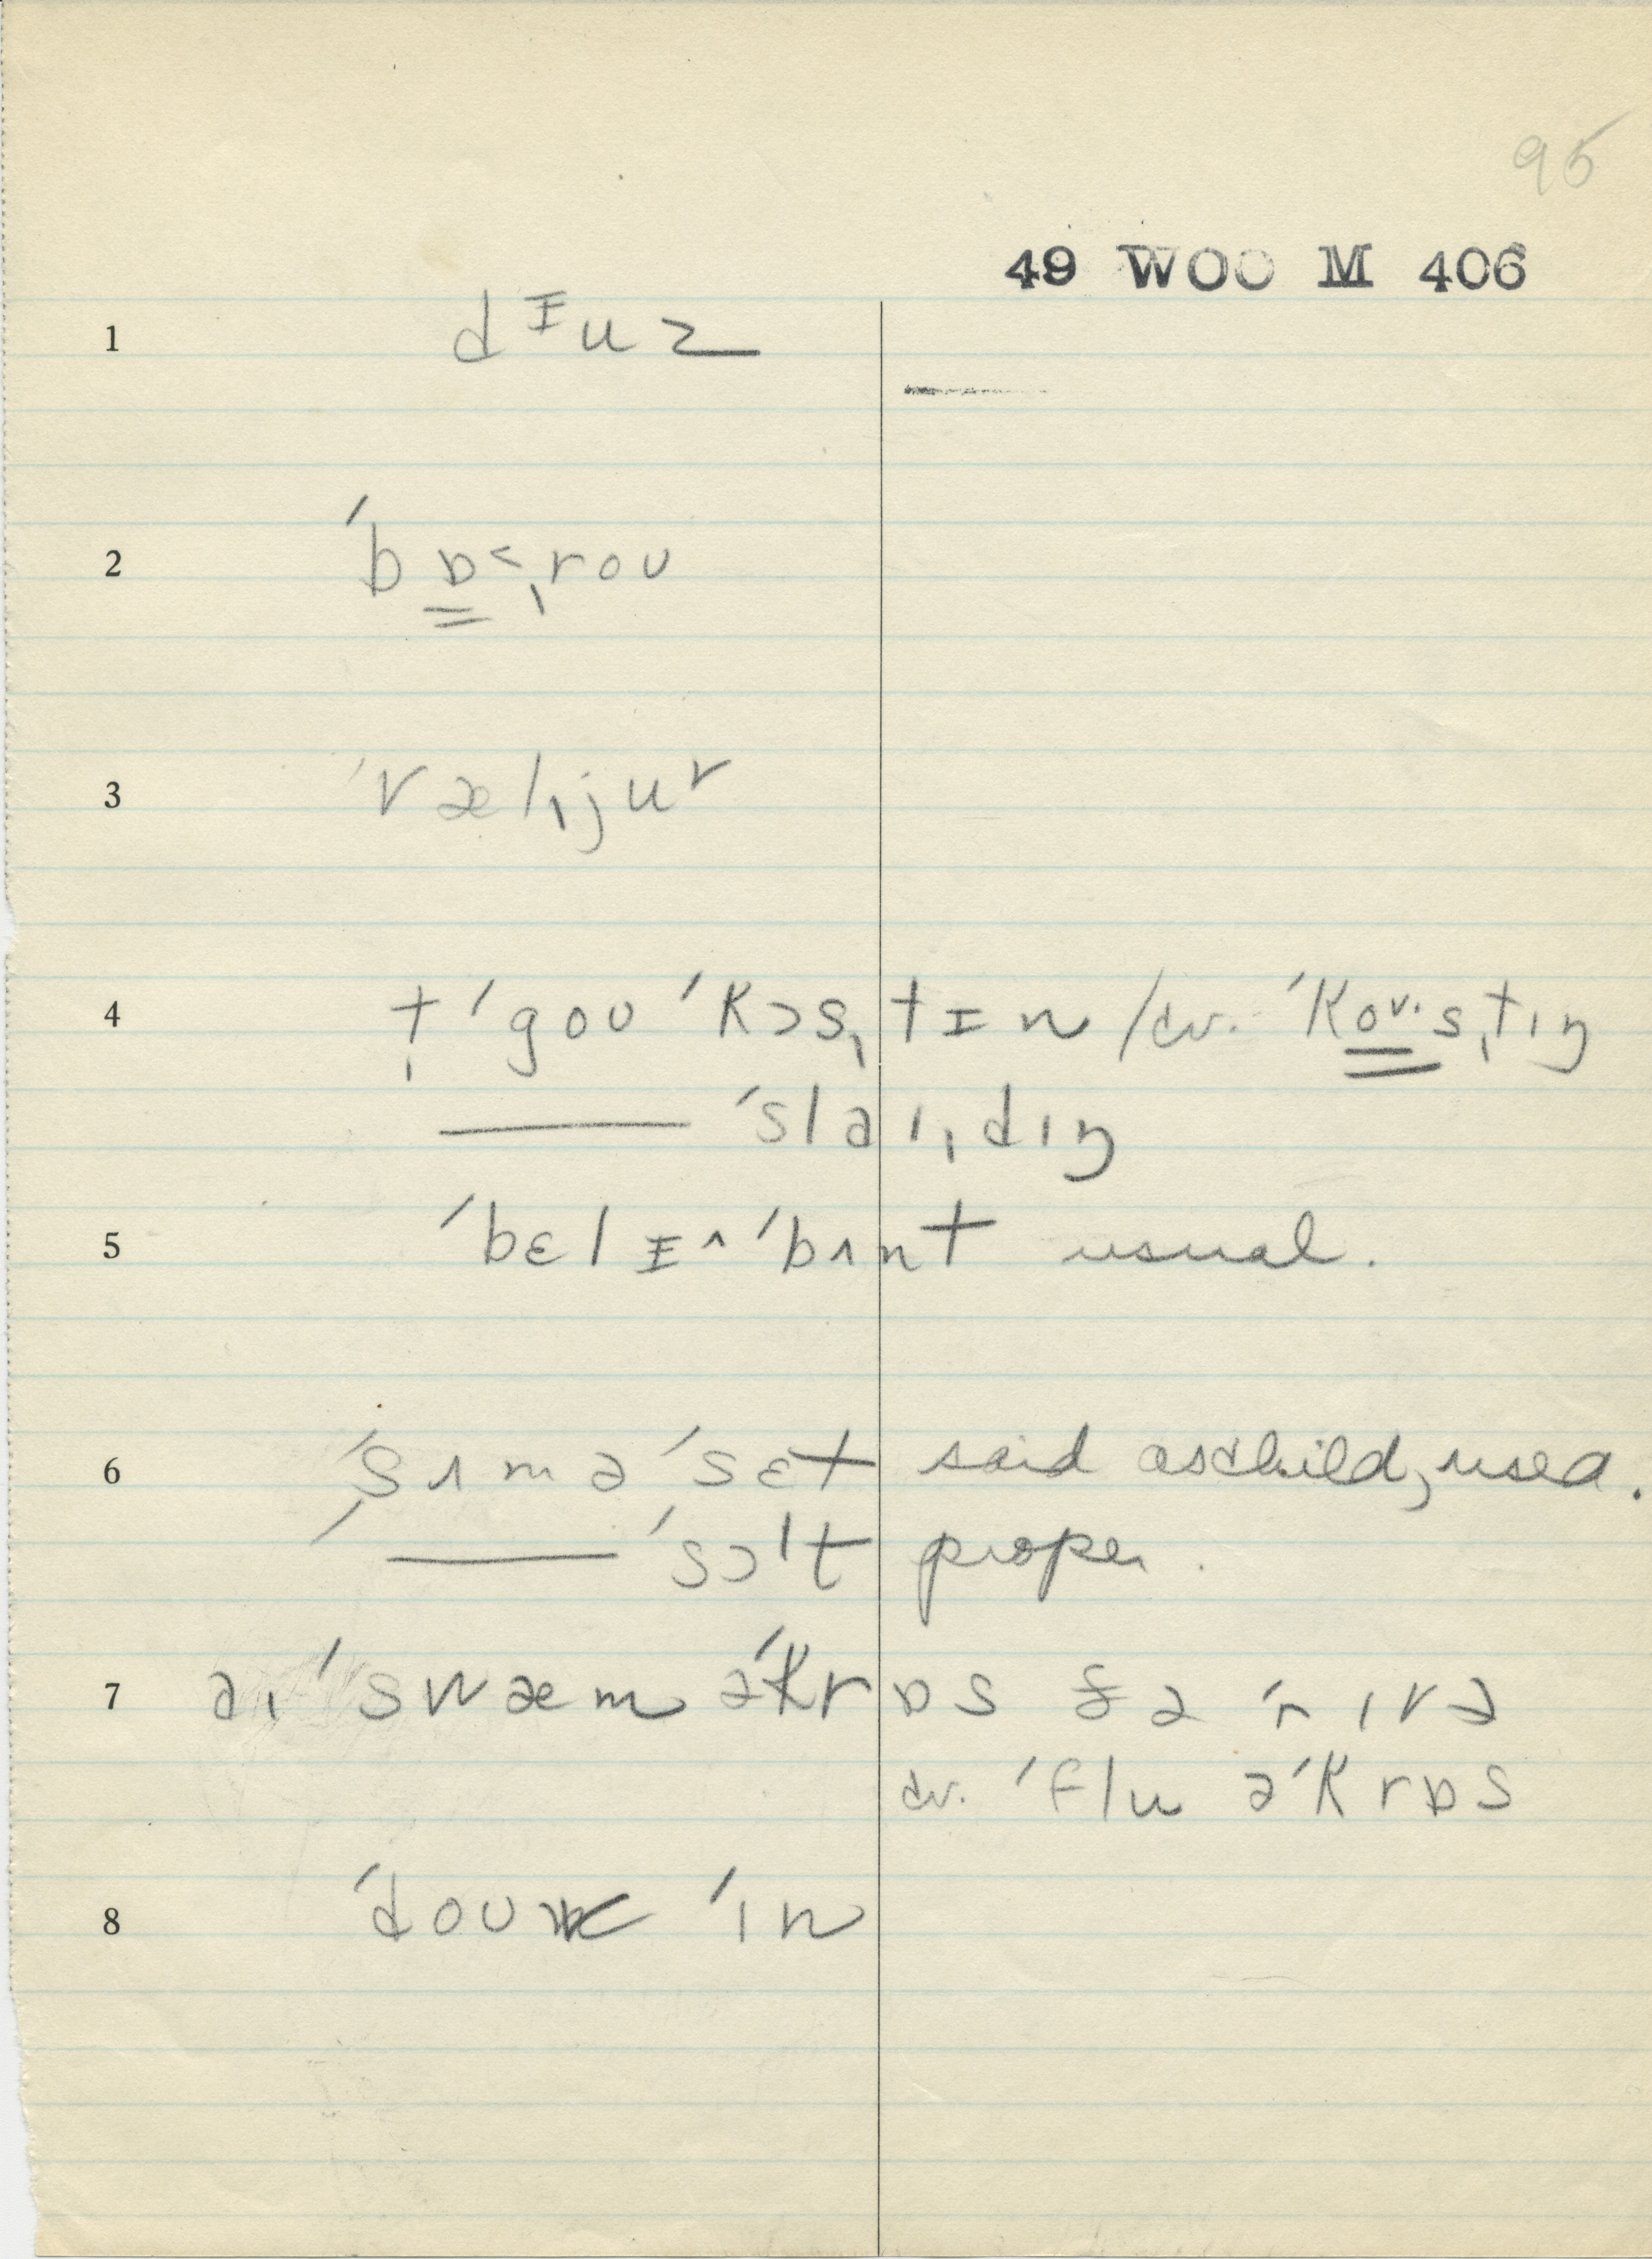 95
49 WOO M 406
1 dᵻuz
2 ˈbɒ˂ˌroʊ
3 ˈvælˌjuʳ
4 † ˈgoʊ ˈkɔsˌtɪn / cv. ˈkoʊ·sˌtɪŋ
——— ˈslaɪˌdɪŋ
5 ˈbɛlɪ^ ˈbʌnt usual.
6 ˈsʌməˈsɛt said as child, used.
——— ˈsɔˈt proper.
7 aɪ ˈswæm əˈkrɒs ðə ˈrɪvə
cv. ˈflu əˈkrɒs
8 ˈdoʊ ˈɪn